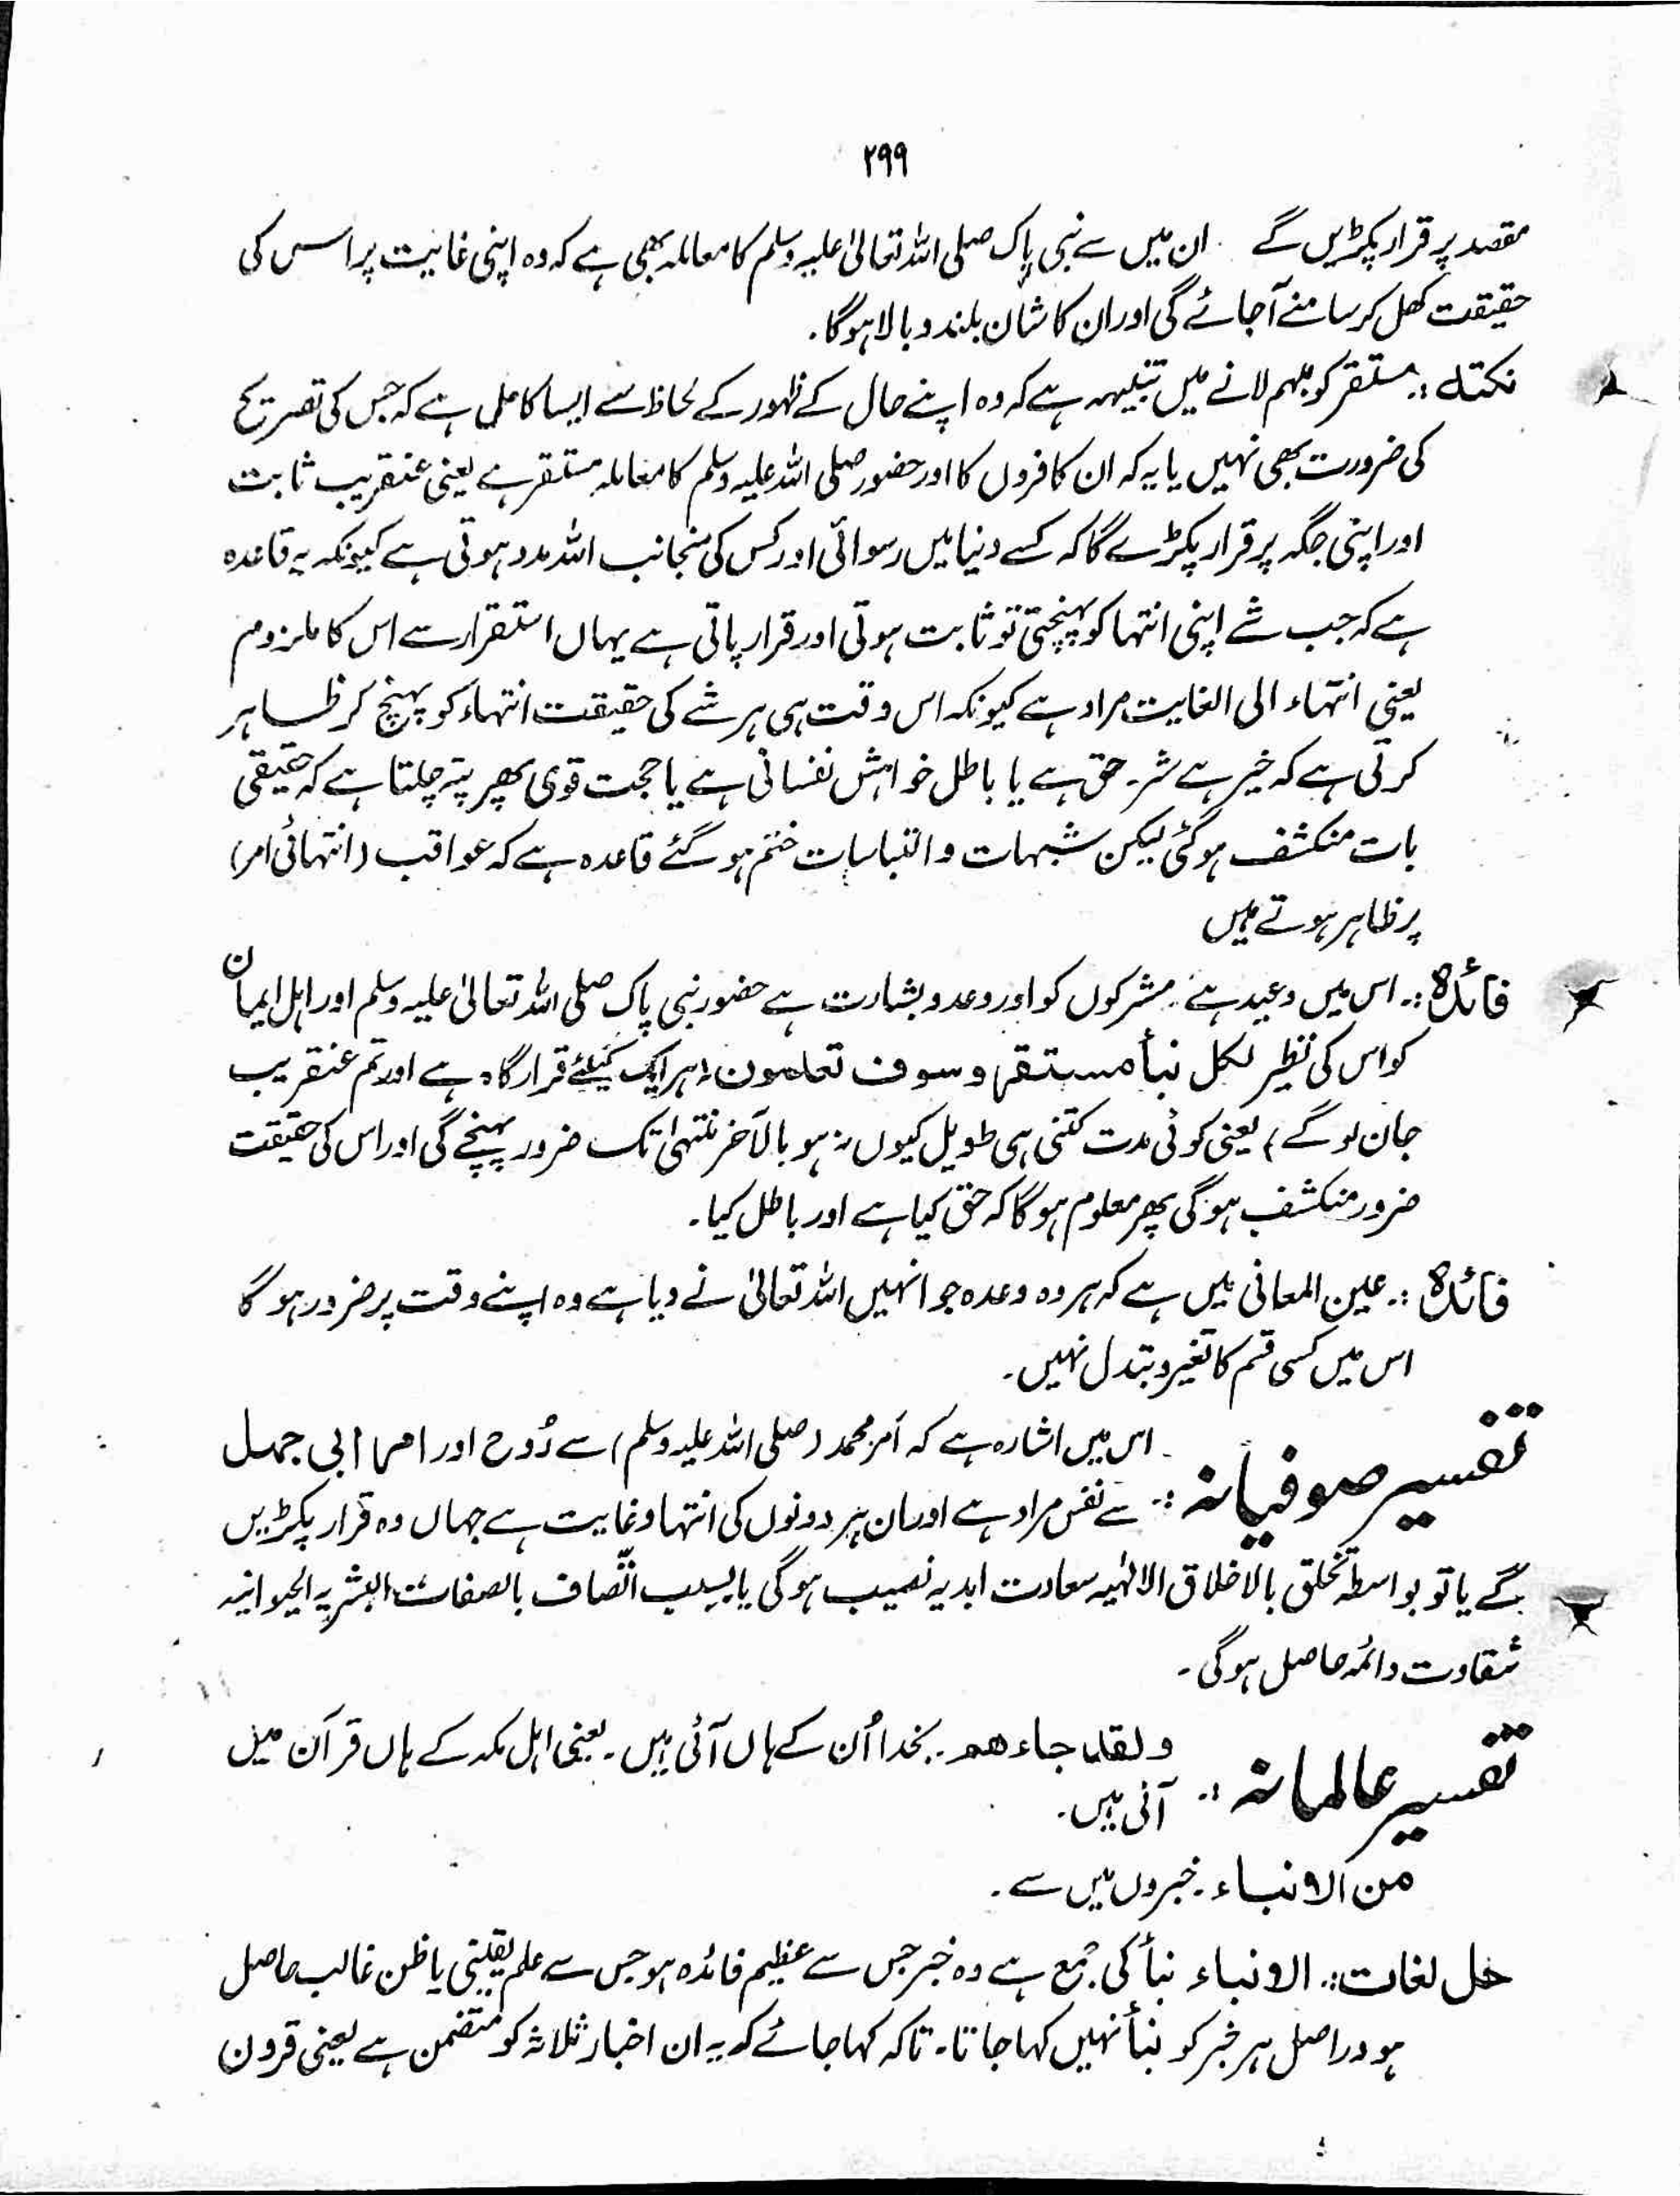 ۲۹۹
مقصد پر قرار پکڑیں گے . ان میں سے نبی پاک صلی اللہ تعالیٰ علیہ وسلم کا معاملہ بھی ہے کہ وہ اپنی غایت پر اس کی
حقیقت کھل کر سامنے آجائے گی اور ان کا شان بلند و بالا ہوگا۔
نکتہ :۔ مستقر کو مبہم لانے میں تنبیہہ ہے کہ وہ اپنے حال کے ظہور کے لحاظ سے ایسا کامل ہے کہ جس کی تصریح
کی ضرورت بھی نہیں یا یہ کہ ان کافروں کا اور حضور صلی اللہ علیہ وسلم کا معاملہ مستقر ہے یعنی عنقریب ثابت
اور اپنی جگہ پر قرار پکڑے گا کہ کسے دنیا میں رسوائی اور کس کی منجانب اللہ مدد ہوتی ہے کیونکہ یہ قاعدہ
ہے کہ جب شے اپنی انتہا کو پہنچتی تو ثابت ہوتی اور قرار پاتی ہے یہاں استقرار سے اس کا ملزوم
یعنی انتہاء الی الغایت مراد ہے کیونکہ اس وقت ہی ہر شے کی حقیقت انتہاء کو پہنچ کر ظاہر
کرتی ہے کہ خیر ہے شر۔ حق ہے یا باطل خواہش نفسانی ہے یا حجت قوی پھر پتہ چلتا ہے کہ حقیقی
بات منکشف ہوگئی لیکن شبہات و التباسات ختم ہو گئے قاعدہ ہے کہ عواقب (انتہائی امر)
پر ظاہر ہوتے ہیں
فائدہ :۔ اس میں وعید ہے مشرکوں کو اور وعدہ بشارت ہے حضور نبی پاک صلی اللہ تعالیٰ علیہ وسلم اور اہل ایمان
کو اس کی نظیر لکل نبأ مستقر و سوف تعلمون (ہر ایک کیلئے قرار گاہ ہے اور تم عنقریب
جان لو گے) یعنی کوئی مدت کتنی ہی طویل کیوں نہ ہو بالآخر منتہیٰ تک ضرور پہنچے گی اور اس کی حقیقت
ضرور منکشف ہوگی پھر معلوم ہوگا کہ حق کیا ہے اور باطل کیا۔
فائدہ :۔ عین المعانی میں ہے کہ ہر وہ وعدہ جو انہیں اللہ تعالیٰ نے دیا ہے وہ اپنے وقت پر ضرور ہو گا
اس میں کسی قسم کا تغیر و تبدل نہیں۔
تفسیر صوفیانہ :۔ اس میں اشارہ ہے کہ اَمر محمد (صلی اللہ علیہ وسلم) سے رُوح اور امر ابی جہل
سے نفس مراد ہے اور ان ہر دونوں کی انتہا و غایت ہے جہاں وہ قرار پکڑیں
گے یا تو بواسطہ تخلق بالاخلاق الالٰہیہ سعادت ابدیہ نصیب ہوگی یا بسبب اتّصاف بالصفات البشریہ الحیوانیہ
شقاوت دائمہ حاصل ہوگی۔
تفسیر عالمانہ :۔ ولقد جاءھم ۔ بخدا اُن کے ہاں آئی ہیں۔ یعنی اہل مکہ کے ہاں قرآن میں
آئی ہیں۔
من الانباء ۔ خبروں میں سے۔
حل لغات :۔ الانباء نبأ کی جمع ہے وہ خبر جس سے عظیم فائدہ ہو جس سے علم یقینی یا ظن غالب حاصل
ہو دراصل ہر خبر کو نبأ نہیں کہا جاتا۔ تاکہ کہا جائے کہ یہ ان اخبار ثلاثہ کو متضمن ہے یعنی قرون